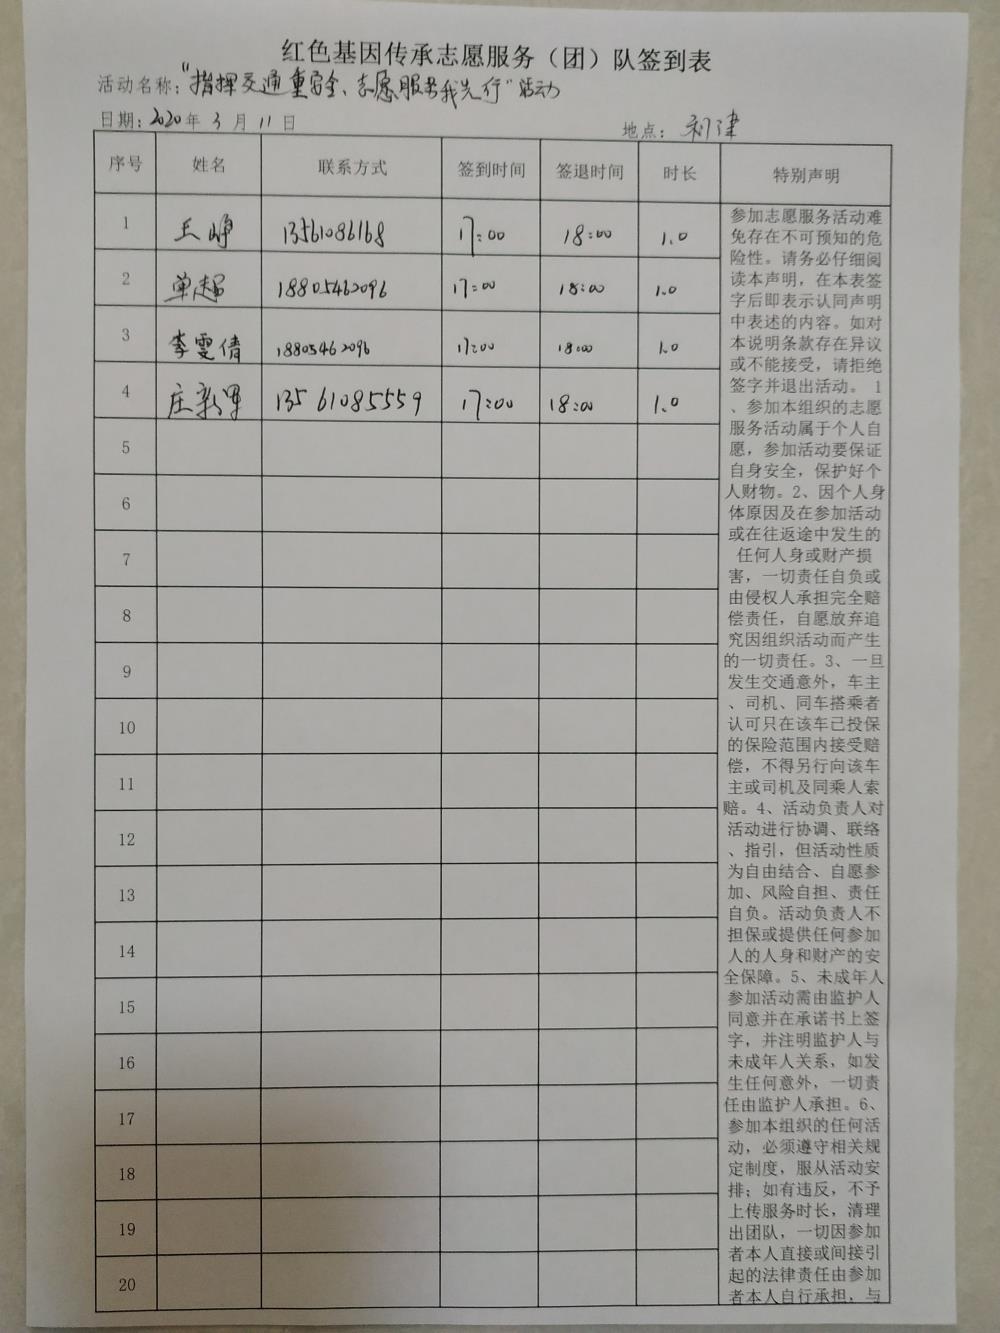 红色基因传承志愿服务（团）队签到表
活动名称："指挥交通重安全、志愿服务我先行"活动
日期：2020年3月11日 地点：利津
序号 姓名 联系方式 签到时间 签退时间 时长 特别声明
1 王峥 13561086168 17:00 18:00 1.0
2 单超 18805462096 17:00 18:00 1.0
3 李雯倩 18805462096 17:00 18:00 1.0
4 庄新军 13561085559 17:00 18:00 1.0
5
6
7
8
9
10
11
12
13
14
15
16
17
18
19
20
参加志愿服务活动难
免存在不可预知的危
险性。请务必仔细阅
读本声明，在本表签
字后即表示认同声明
中表述的内容。如对
本说明条款存在异议
或不能接受，请拒绝
签字并退出活动。 1
、参加本组织的志愿
服务活动属于个人自
愿，参加活动要保证
自身安全，保护好个
人财物。2、因个人身
体原因及在参加活动
或在往返途中发生的
任何人身或财产损
害，一切责任自负或
由侵权人承担完全赔
偿责任，自愿放弃追
究因组织活动而产生
的一切责任。3、一旦
发生交通意外，车主
、司机、同车搭乘者
认可只在该车已投保
的保险范围内接受赔
偿，不得另行向该车
主或司机及同乘人索
赔。4、活动负责人对
活动进行协调、联络
、指引，但活动性质
为自由结合、自愿参
加、风险自担、责任
自负。活动负责人不
担保或提供任何参加
人的人身和财产的安
全保障。5、未成年人
参加活动需由监护人
同意并在承诺书上签
字，并注明监护人与
未成年人关系，如发
生任何意外，一切责
任由监护人承担。6、
参加本组织的任何活
动，必须遵守相关规
定制度，服从活动安
排；如有违反，不予
上传服务时长，清理
出团队，一切因参加
者本人直接或间接引
起的法律责任由参加
者本人自行承担，与